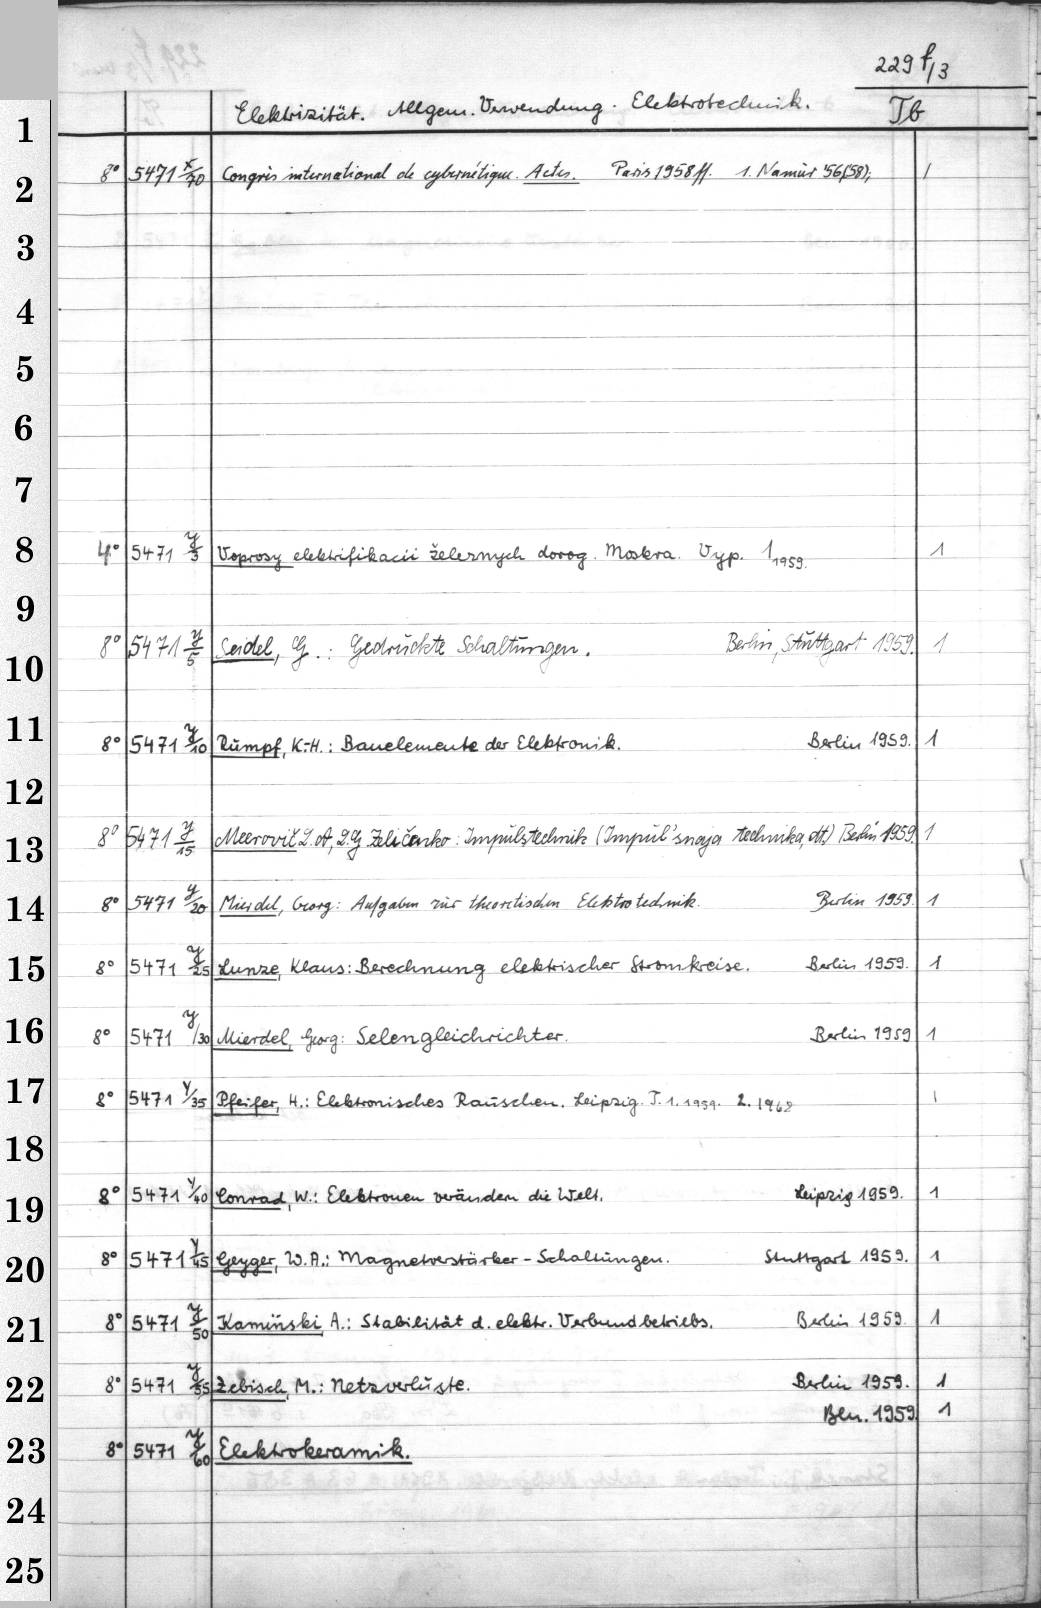 229 f/3
Elektrizität. Allgem. Verwendung. Elektrotechnik. Tb
1
2 8° 5471 x/70 Congrès international de cybernétique. Actes. Paris 1958 ff. 1. Namur '56(58); 1
3
4
5
6
7
8 4° 5471 y/3 Voprosy elektrifikacii železnych dorog. Moskva. Vyp. 1 1959. 1
9
10 8° 5471 y/5 Seidel, G.: Gedruckte Schaltungen. Berlin, Stuttgart 1959. 1
11 8° 5471 y/10 Rumpf, K.-H.: Bauelemente der Elektronik. Berlin 1959. 1
12
13 8° 5471 y/15 Meerovič L.A., L.G. Zeličenko: Impulstechnik (Impul'snaja technika, dt.) Berlin 1959. 1
14 8° 5471 y/20 Mierdel, Georg: Aufgaben zur theoretischen Elektrotechnik. Berlin 1959. 1
15 8° 5471 y/25 Lunze, Klaus: Berechnung elektrischer Stromkreise. Berlin 1959. 1
16 8° 5471 y/30 Mierdel, Georg: Selengleichrichter. Berlin 1959 1
17 8° 5471 y/35 Pfeifer, H.: Elektronisches Rauschen. Leipzig. T. 1. 1959. 2. 1968 1
18
19 8° 5471 y/40 Conrad, W.: Elektronen verändern die Welt. Leipzig 1959. 1
20 8° 5471 y/45 Geyger, W.A.: Magnetverstärker-Schaltungen. Stuttgart 1959. 1
21 8° 5471 y/50 Kamiński, A.: Stabilität d. elektr. Verbundbetriebs. Berlin 1959. 1
22 8° 5471 y/55 Zebisch, M.: Netzverluste. Berlin 1959. 1
Bln. 1959. 1
23 8° 5471 y/60 Elektrokeramik.
24
25